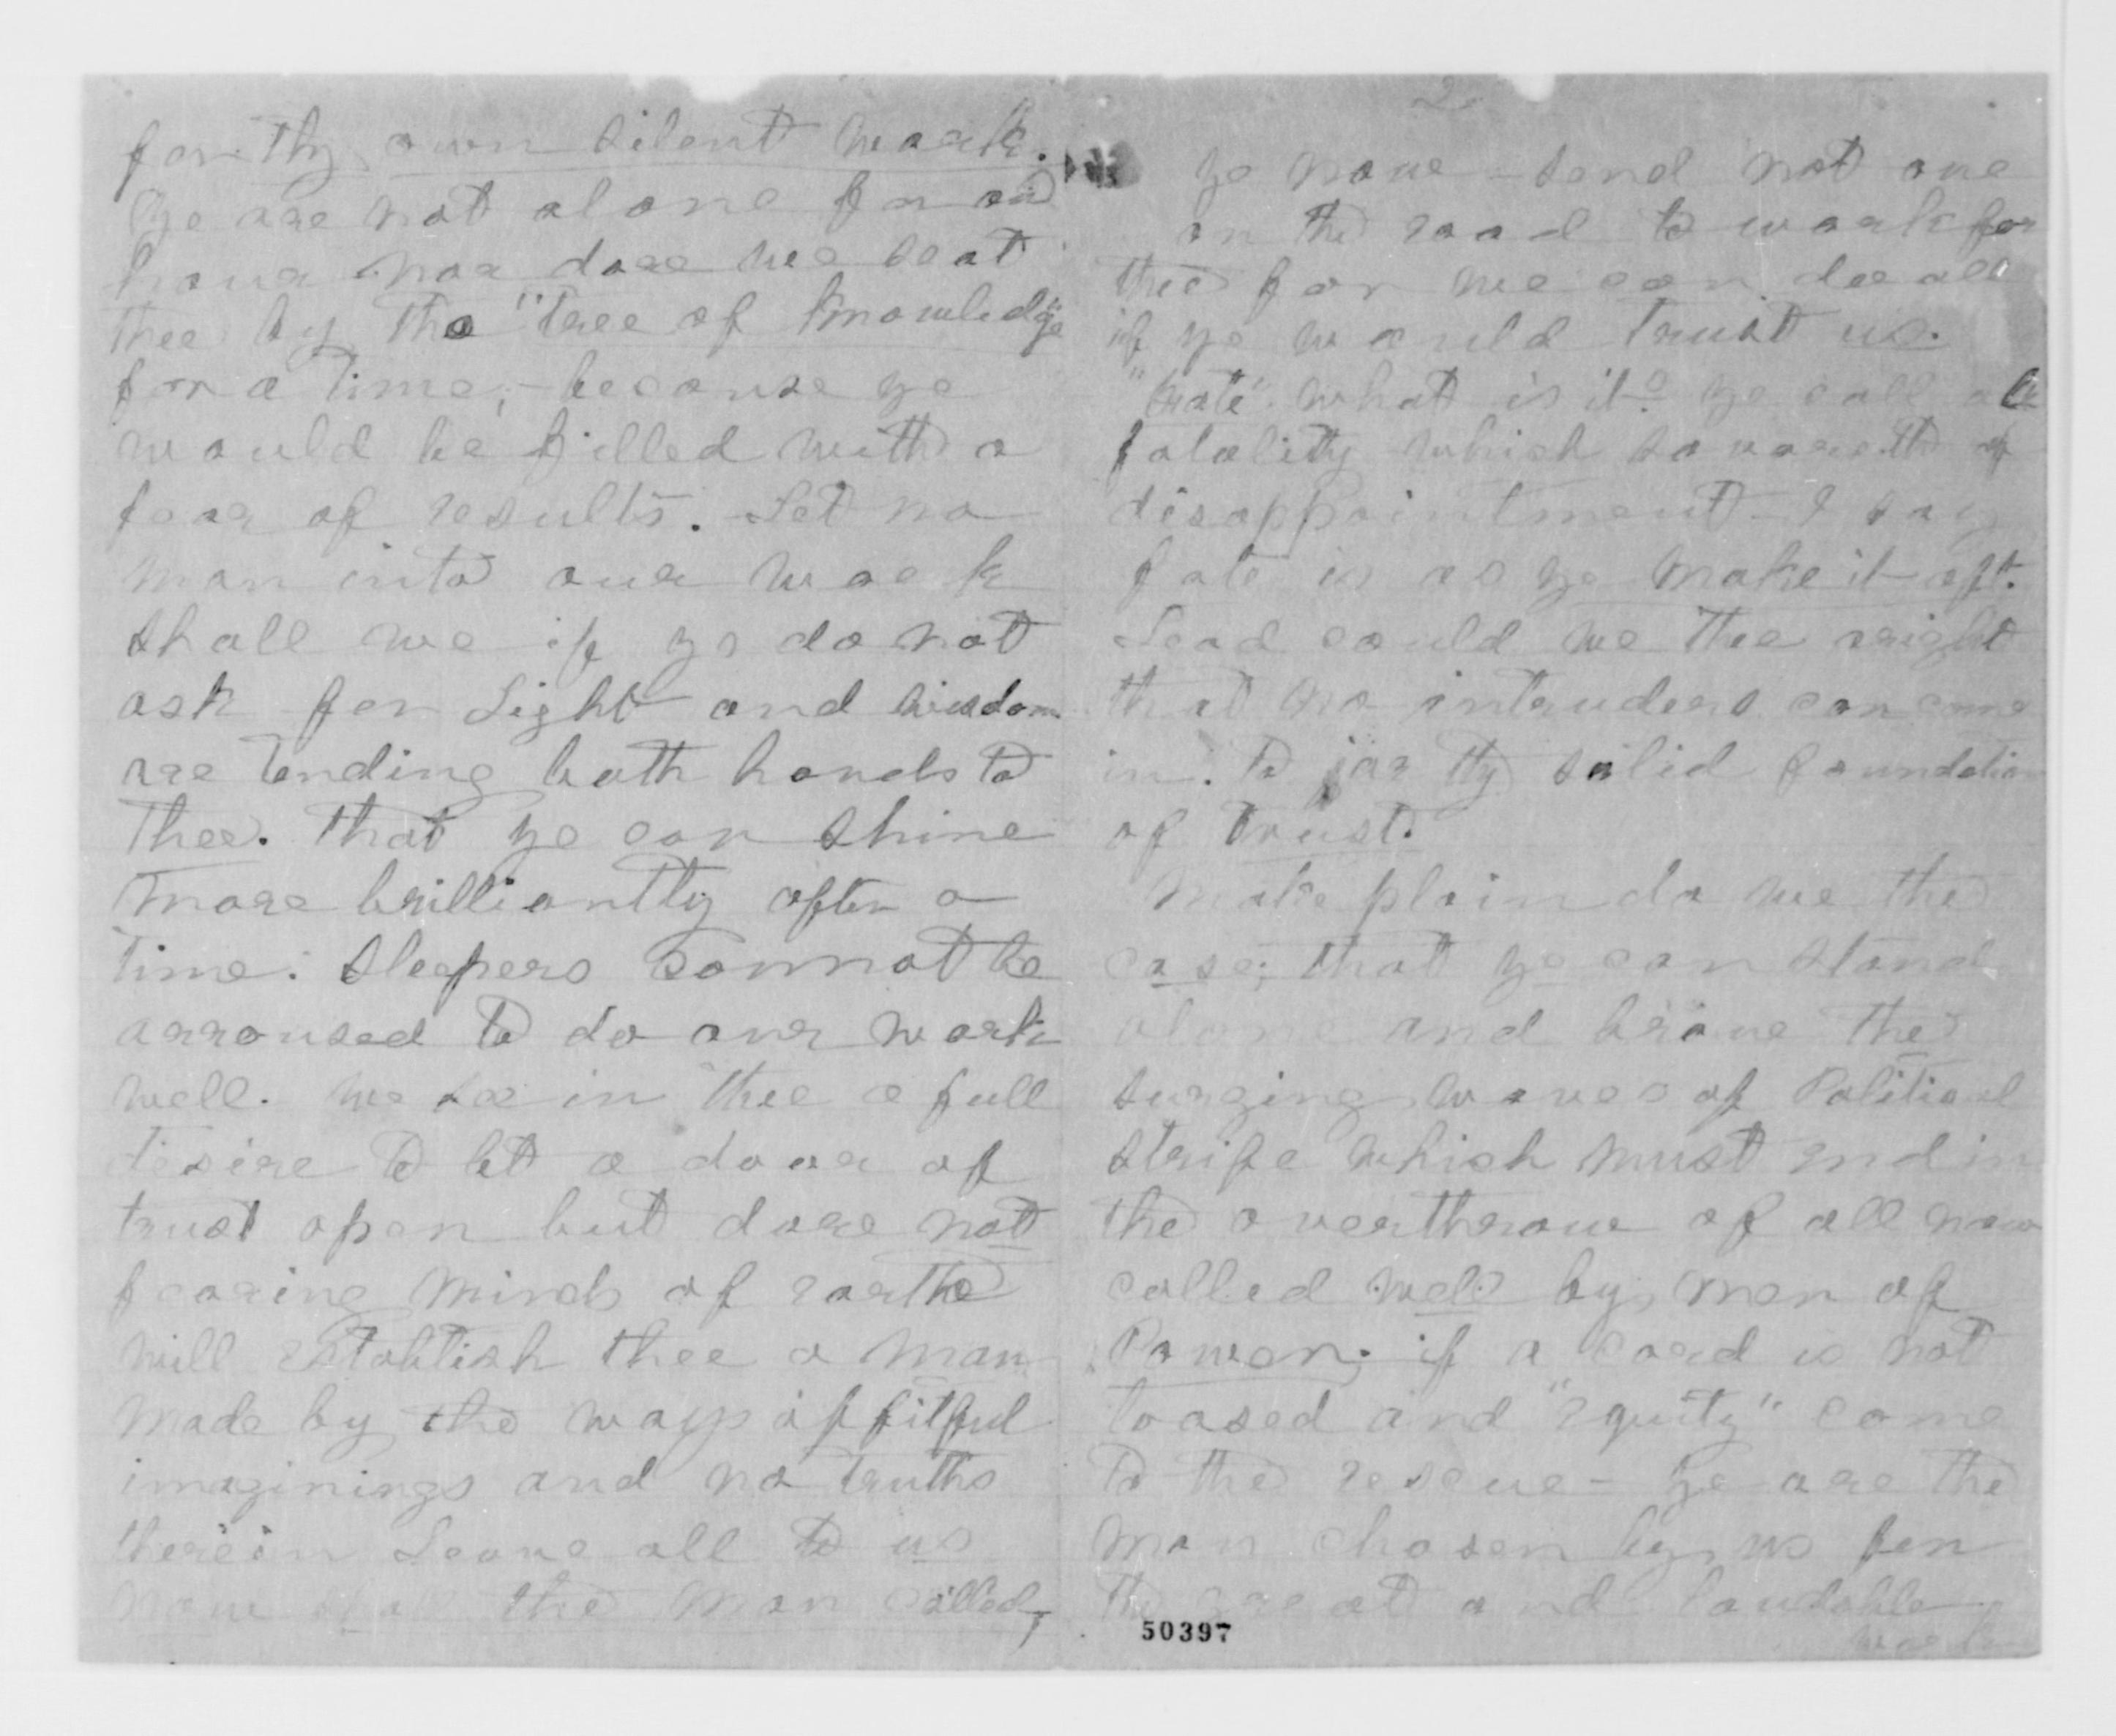 for thy own silent work.
Ye are not alone for an
hour nor dare we seat
thee by the "Tree of Knowledge
for a time, - because ye
would be filled with a
fear of results. Let no
man into our work
shall we if ye do not
ask for Light and wisdom
are lending both hands to
thee. that ye can shine
more brilliantly after a
time. Sleepers cannot be
arroused to do our work
well. We see in thee a full
desire to let a door of
trust open but dare not
fearing minds of earth
will establish thee a man
made by the ways of fitful
imaginings and no truths
therein Leave all to us
now the man called,
2.
ye now - send not one
on the road to work for
thee for we can do all
if ye would trust us.
"Fate" what is it? ye call all
fatality which savoreth of
disappointment - I say
fate is as ye make it oft.
Lead could we thee aright
that no intruders can come
in. to jar thy solid foundation
of trust.
Make plain do we the
case; that ye can stand
alone and brave the
surging waves of Political
strife which must end in
the overthrow of all now
called well by men of
Power; if a card is not
tossed and "equity" come
to the rescue - Ye are the
man chosen by us for
the great and laudable
work
50397